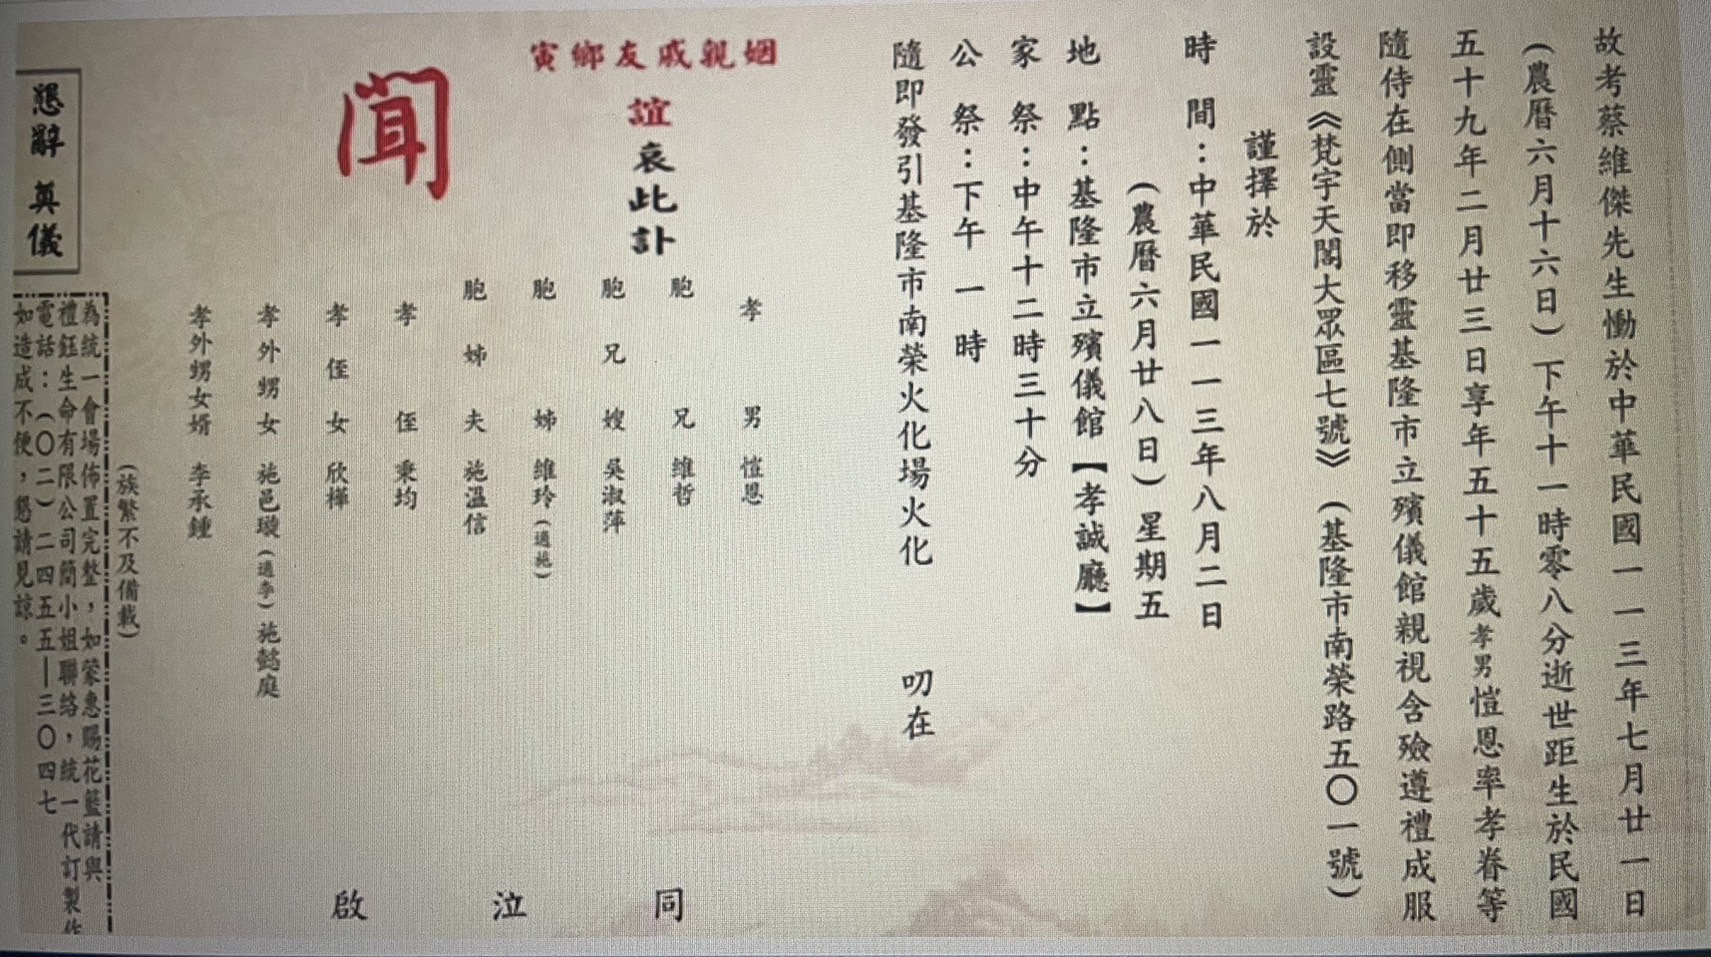 故考蔡維傑先生慟於中華民國一一三年七月廿一日
(農曆六月十六日)下午十一時零八分逝世距生於民國
五十九年二月廿三日享年五十五歲孝男愷恩率孝眷等
隨侍在側當即移靈基隆市立殯儀館親視含殮遵禮成服
設靈《梵宇天閣大眾區七號》(基隆市南榮路五〇一號)
謹擇於
時間:中華民國一一三年八月二日
(農曆六月廿八日)星期五
地點:基隆市立殯儀館【孝誠廳】
家祭:中午十二時三十分
公祭:下午一時
隨即發引基隆市南榮火化場火化 叨在
姻親戚友鄉寅
誼哀此訃
聞
孝男 愷恩
胞兄 維哲
胞兄嫂 吳淑萍
胞姊 維玲(適施)
胞姊夫 施溫信
孝侄 秉均
孝侄女 欣樺
孝外甥女 施邑璇(適李)施懿庭
孝外甥女婿 李承鍾
同泣啟
(族繁不及備載)
懇辭奠儀
為統一會場佈置完整,如蒙惠賜花籃請與
禮鈺生命有限公司簡小姐聯絡,統一代訂製作
電話:(〇二)二四五五—三〇四七
如造成不便,懇請見諒。